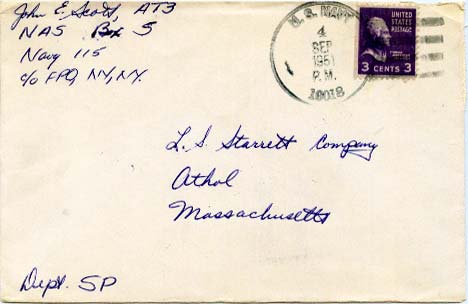 John E. Scott, AT3
NAS Box 5
Navy 115
c/o FPO, NY, NY.
U.S. NAVY
4
SEP
1951
P.M.
UNITED
STATES
POSTAGE
3 CENTS 3
L. S. Starrett Company
Athol
Massachusetts
Dept. SP